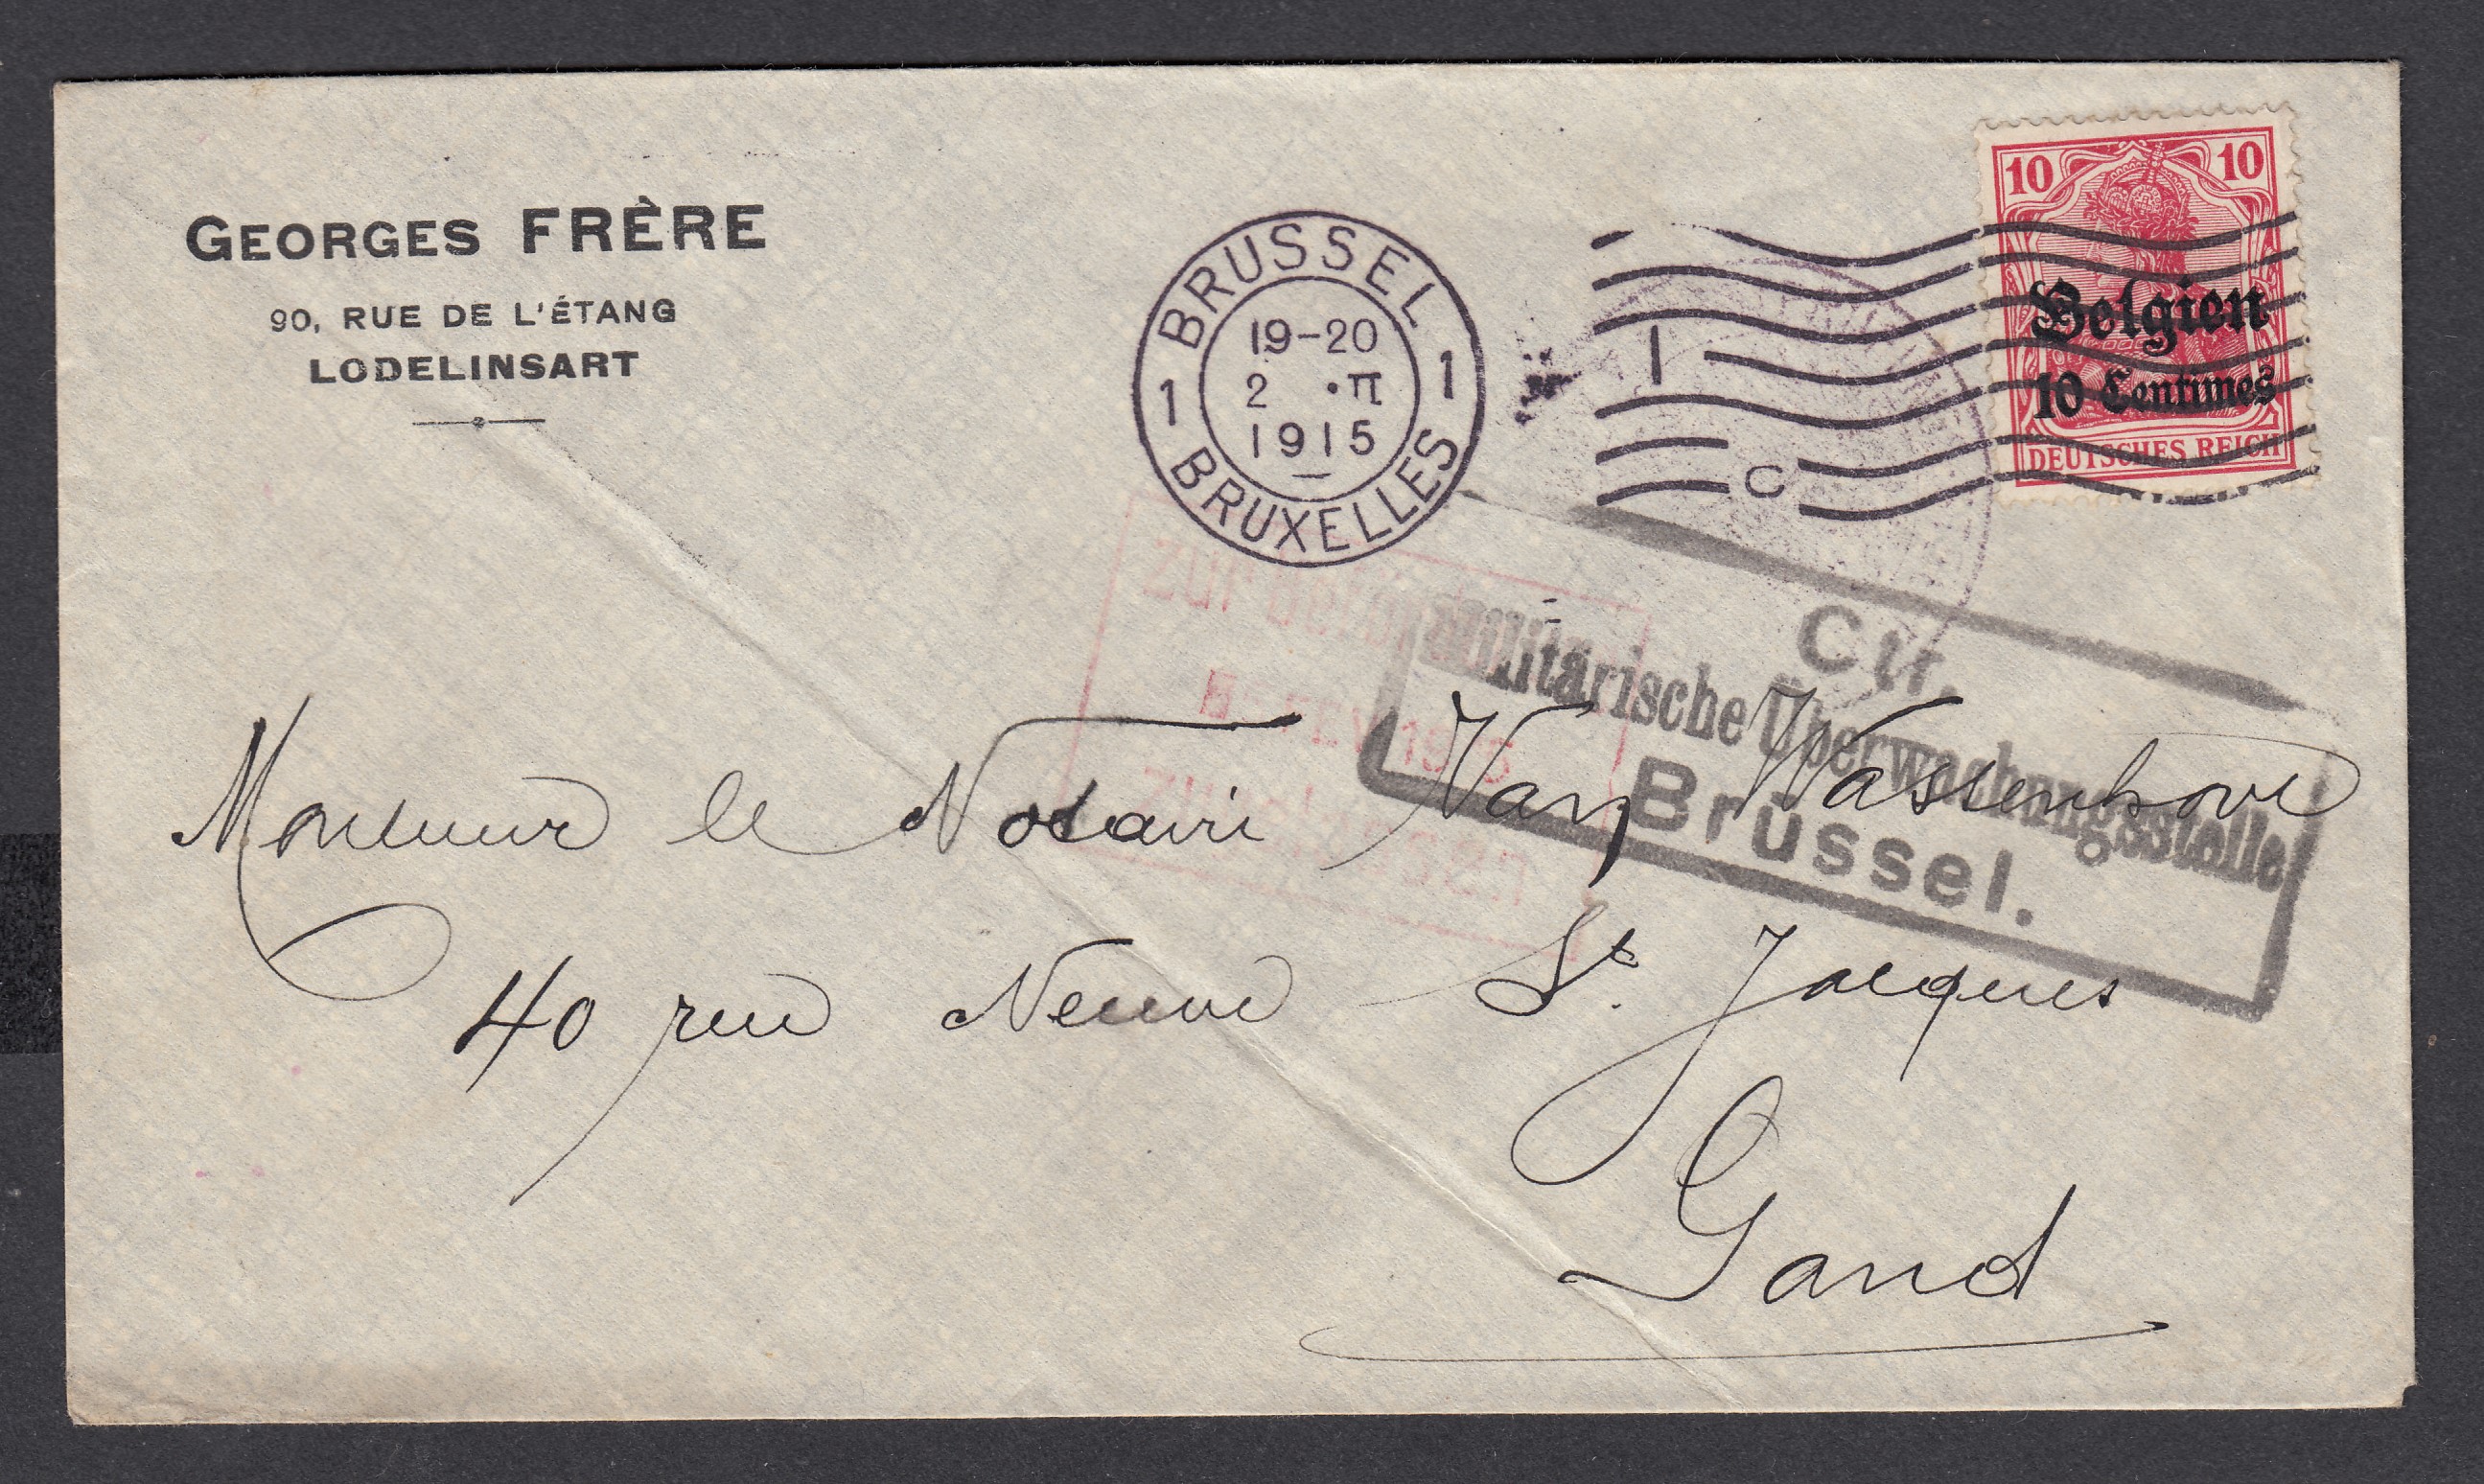 GEORGES FRÈRE
90, RUE DE L'ÉTANG
LODELINSART
BRUSSEL
1 1
19-20
2 ·II
1915
BRUXELLES
1
C
10 10
Belgien
10 Centimes
DEUTSCHES REICH
Ctr.
Militärische Überwachungsstelle
Brüssel.
Zur
FEV 1915
Monsieur le Notaire Van Wassenhove
40 rue Neuve St. Jacques
Gand